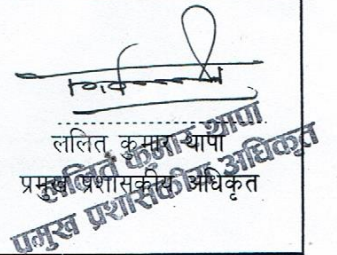 ललित कुमार थापा
प्रमुख प्रशासकीय अधिकृत
ललित कुमार थापा
प्रमुख प्रशासकीय अधिकृत